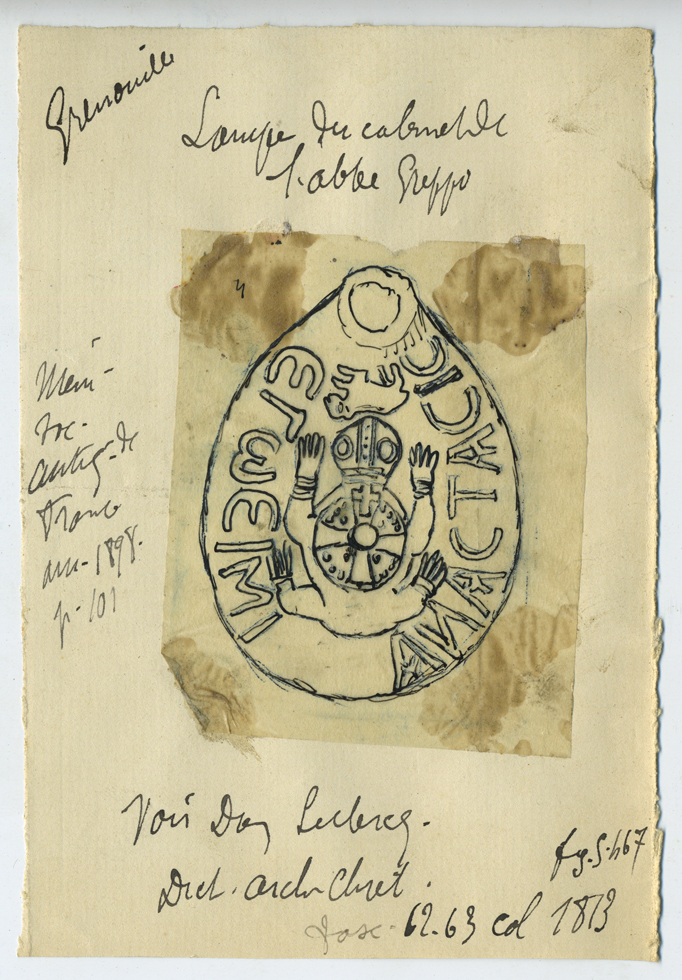 Grenouille
Lampe du cabinet de
l'abbé Greppo
Mém-
soc.
antiq. de
France
ann. 1898.
p. 101
ΕΓωΕΙΜΙ
ΑΝΑCΤΑCΙC
Voir Dom Leclercq.
Dict. arch. Chret.
fig. 5467
fasc. 62-63 col 1813